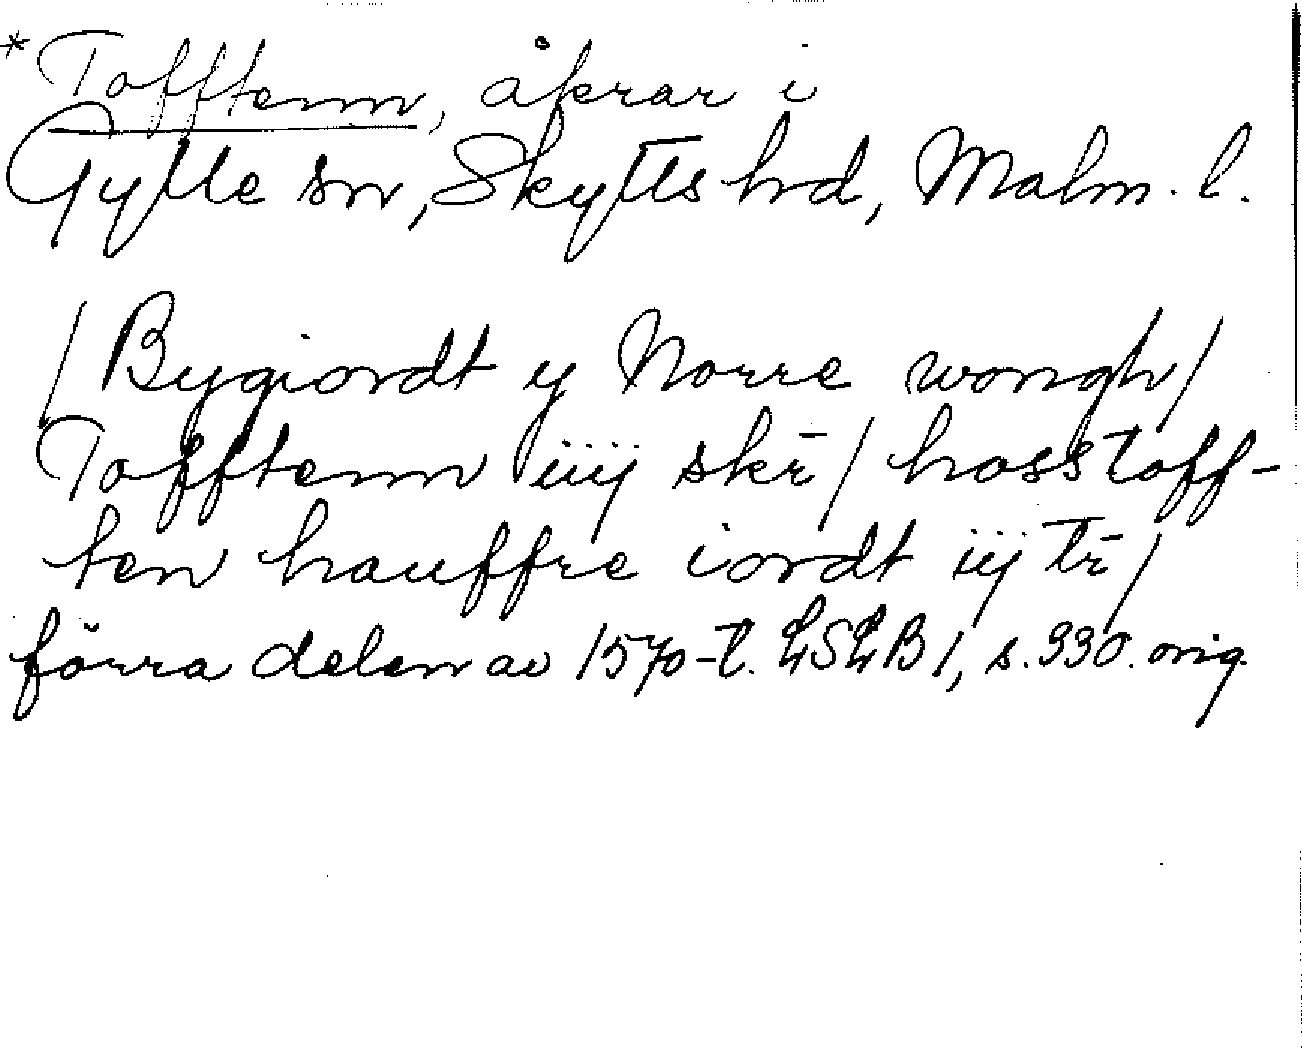 *Tofftenn, åkrar i
Gylle sn, Skytts hd, Malm. l.
/Bygiordt y Norre wongh/
Tofftenn iiij skr̄/ hoss toff-
ten hauffre iordt iij tr̄/
förra delen av 1570-t. LSLB 1, s. 330. orig.